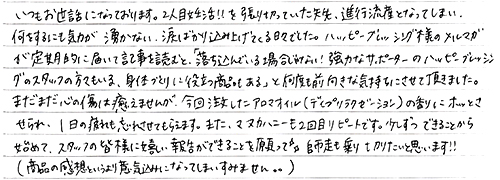 いつもお世話になっております。2人目妊活!!を張り切っていた矢先、進行流産となってしまい、
何をするにも気力が湧かない、涙ばかり込み上げてくる日々でした。ハッピーブレッシング様のメルマガ
が定期的に届いて記事を読むと、「落ち込んでいる場合じゃない!強力なサポーターのハッピーブレッシン
グのスタッフの方々もいる、身体づくりに役立つ商品もある」と何度も前向きな気持ちにさせて頂きました。
まだまだ心の傷は癒えませんが、今回注文したアロマオイル(デプリラクゼーション)の香りにホッとさ
せられ、1日の疲れも忘れさせてもらえます。また、マヌカハニーも2回目リピートです。少しずつできることから
始めて、スタッフの皆様にも嬉しい報告ができることを願って、師走も乗り切りたいと思います!!
(商品の感想というより意気込みになってしまいすみません。。)